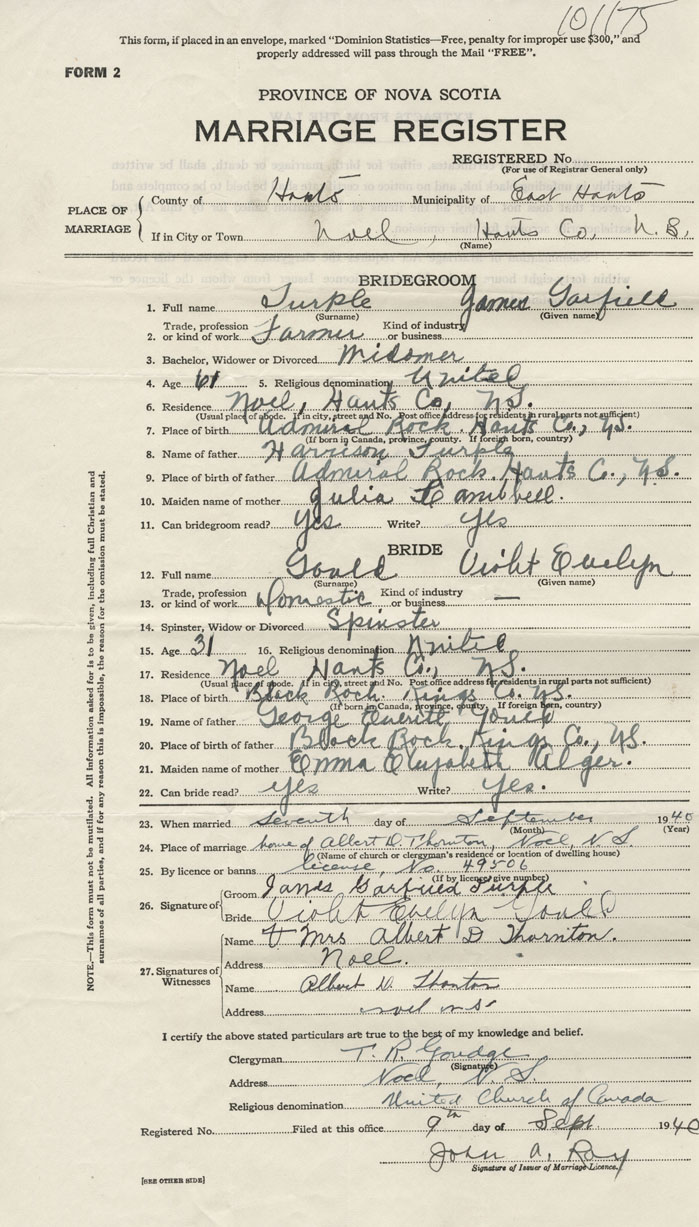 101175
This form, if placed in an envelope, marked "Dominion Statistics—Free, penalty for improper use $300," and
properly addressed will pass through the Mail "FREE".
FORM 2
PROVINCE OF NOVA SCOTIA
MARRIAGE REGISTER
REGISTERED No.
(For use of Registrar General only)
PLACE OF MARRIAGE
County of Hants Municipality of East Hants
If in City or Town Noel, Hants Co, N.S.
(Name)
BRIDEGROOM
1. Full name Turple James Garfield
(Surname) (Given name)
2. Trade, profession or kind of work Farmer Kind of industry or business
3. Bachelor, Widower or Divorced Widower
4. Age 61 5. Religious denomination United
6. Residence Noel, Hants Co, N.S.
(Usual place of abode. If in city, street and No. Post office address for residents in rural parts not sufficient)
7. Place of birth Admiral Rock. Hants Co., N.S.
(If born in Canada, province, county. If foreign born, country)
8. Name of father Harrison Turple
9. Place of birth of father Admiral Rock. Hants Co., N.S.
10. Maiden name of mother Julia Campbell.
11. Can bridegroom read? Yes Write? yes
BRIDE
12. Full name Gould Violet Evelyn
(Surname) (Given name)
13. Trade, profession or kind of work Domestic Kind of industry or business —
14. Spinster, Widow or Divorced Spinster
15. Age 31 16. Religious denomination United
17. Residence Noel Hants Co., N.S.
(Usual place of abode. If in city, street and No. Post office address for residents in rural parts not sufficient)
18. Place of birth Black Rock. Kings Co. N.S.
(If born in Canada, province, county. If foreign born, country)
19. Name of father George Everitt Gould
20. Place of birth of father Black Rock, Kings Co., N.S.
21. Maiden name of mother Emma Elizabeth Alger.
22. Can bride read? yes Write? yes.
23. When married Seventh day of September 1940
(Month) (Year)
24. Place of marriage home of Albert D. Thornton, Noel, N.S.
(Name of church or clergyman's residence or location of dwelling house)
25. By licence or banns license, No. 49506
(If by licence, give number)
26. Signature of Groom James Garfield Turple
Bride Violet Evelyn Gould
27. Signatures of Witnesses
Name Mrs Albert D Thornton.
Address Noel.
Name Albert D. Thonton
Address noel ns
I certify the above stated particulars are true to the best of my knowledge and belief.
Clergyman T. R. Goudge
(Signature)
Address Noel, N.S.
Religious denomination United Church of Canada
Registered No. Filed at this office 9th day of Sept 1940
John A. Roy
Signature of Issuer of Marriage Licence.
[SEE OTHER SIDE]
NOTE.—This form must not be mutilated. All information asked for is to be given, including full Christian and
surnames of all parties, and if for any reason this is impossible, the reason for the omission must be stated.